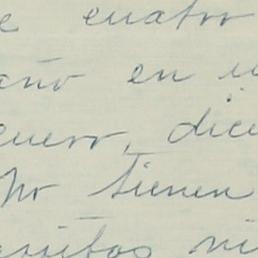 e cuatro
año en u
cuero, dice
No tienen
critos ni